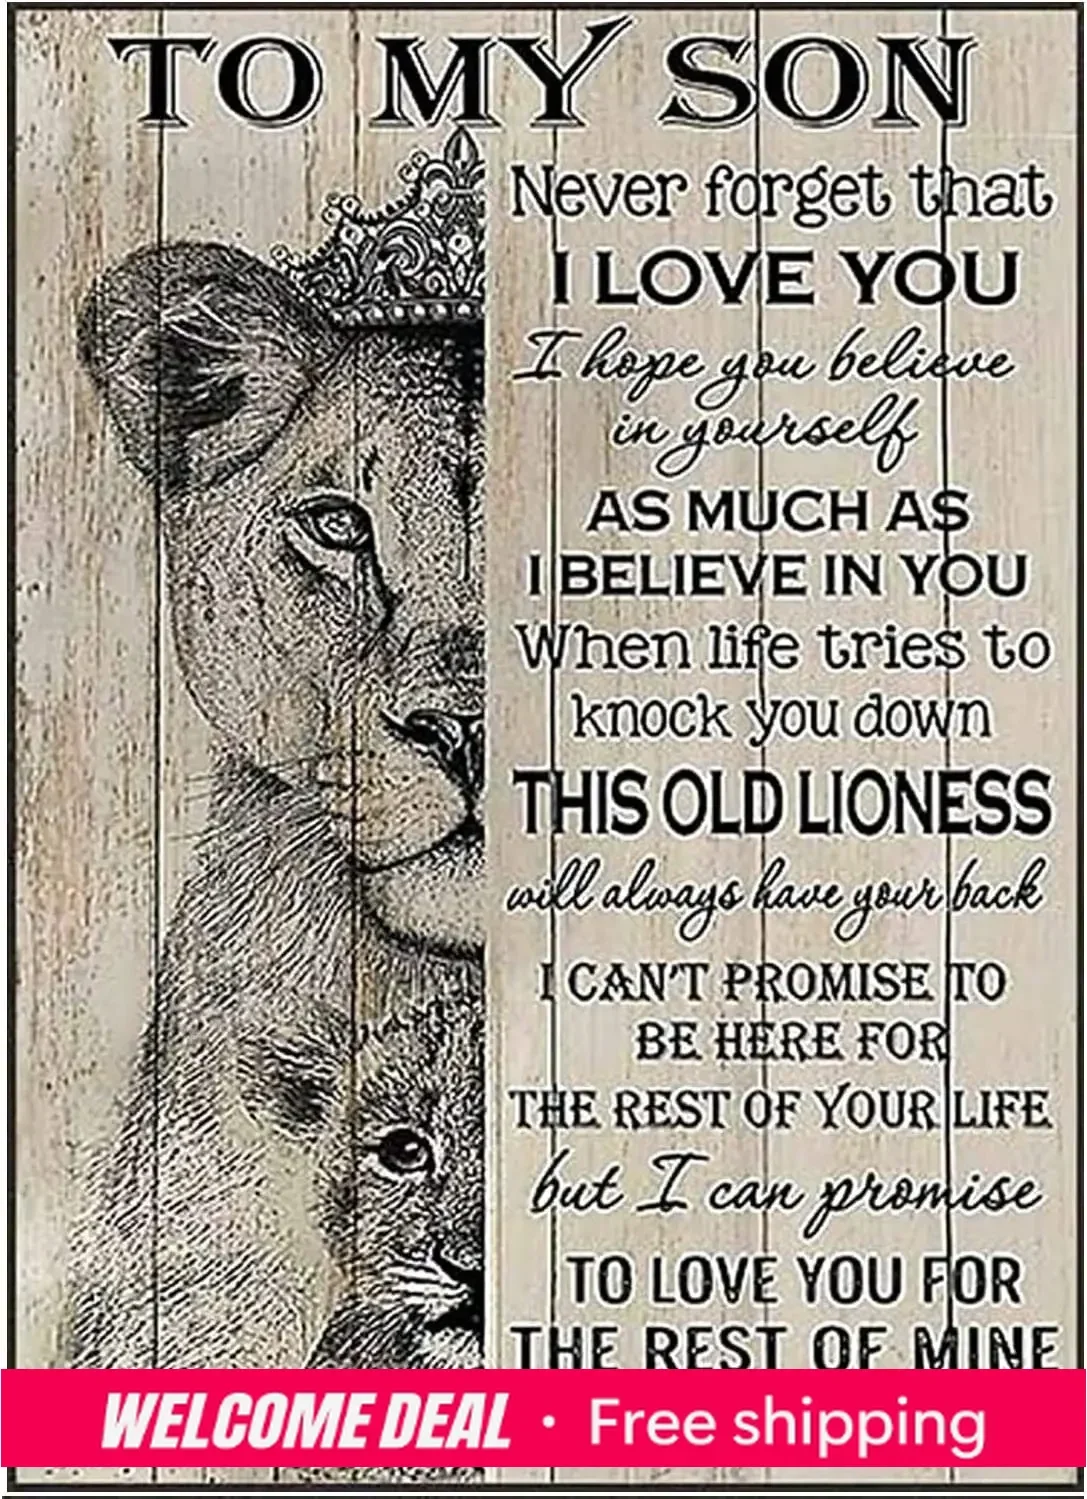 TO MY SON
Never forget that
I LOVE YOU
I hope you believe
in yourself
AS MUCH AS
I BELIEVE IN YOU
When life tries to
knock you down
THIS OLD LIONESS
will always have your back
I CAN'T PROMISE TO
BE HERE FOR
THE REST OF YOUR LIFE
but I can promise
TO LOVE YOU FOR
THE REST OF MINE
WELCOME DEAL · Free shipping